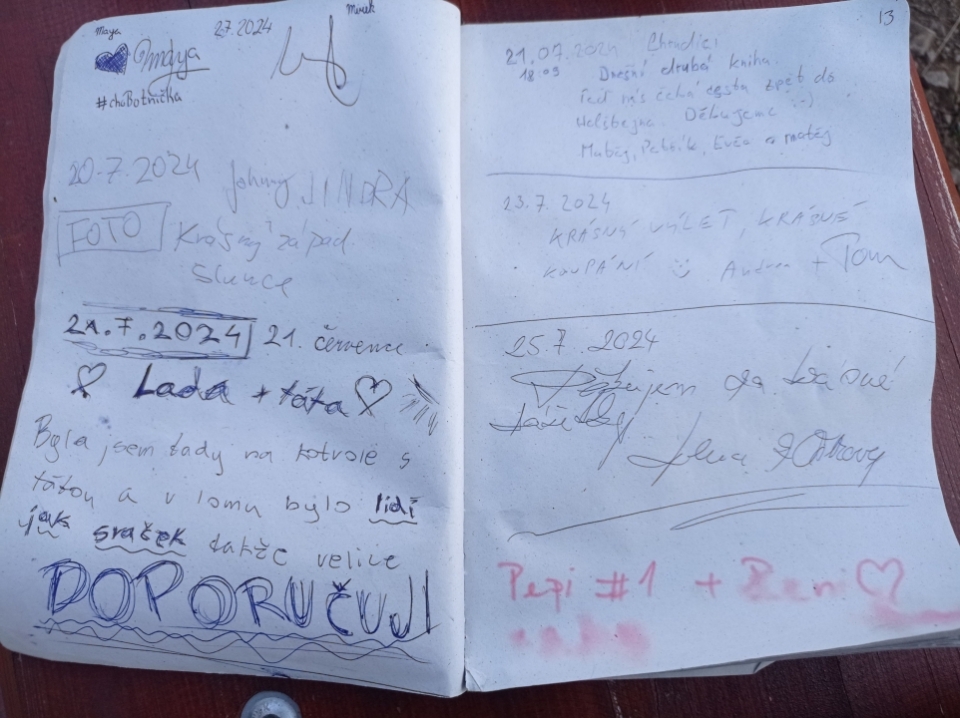 Maya
27.2024
Mirek
#choBotnička
20.7.2024
Johnny JINDRA
FOTO
Krásný západ
Slunce
21.7.2024 21. července
Lada + táta
Byla jsem tady na kotvoie s
tátou a v lomu bylo lidí
jak sraček takže velice
DOPORUČUJI
13
21.07.2024 Chrudiei
18:09 Dnešní druhá kniha.
Teď nás čeká cesta zpět do
Děkujeme :-)
Matěj, Patrik, Evča a matěj
23.7.2024
KRÁSNÝ VÝLET, KRÁSNÉ
KOUPÁNÍ Andrea + Tom
25.7 2024
Pepi #1 +